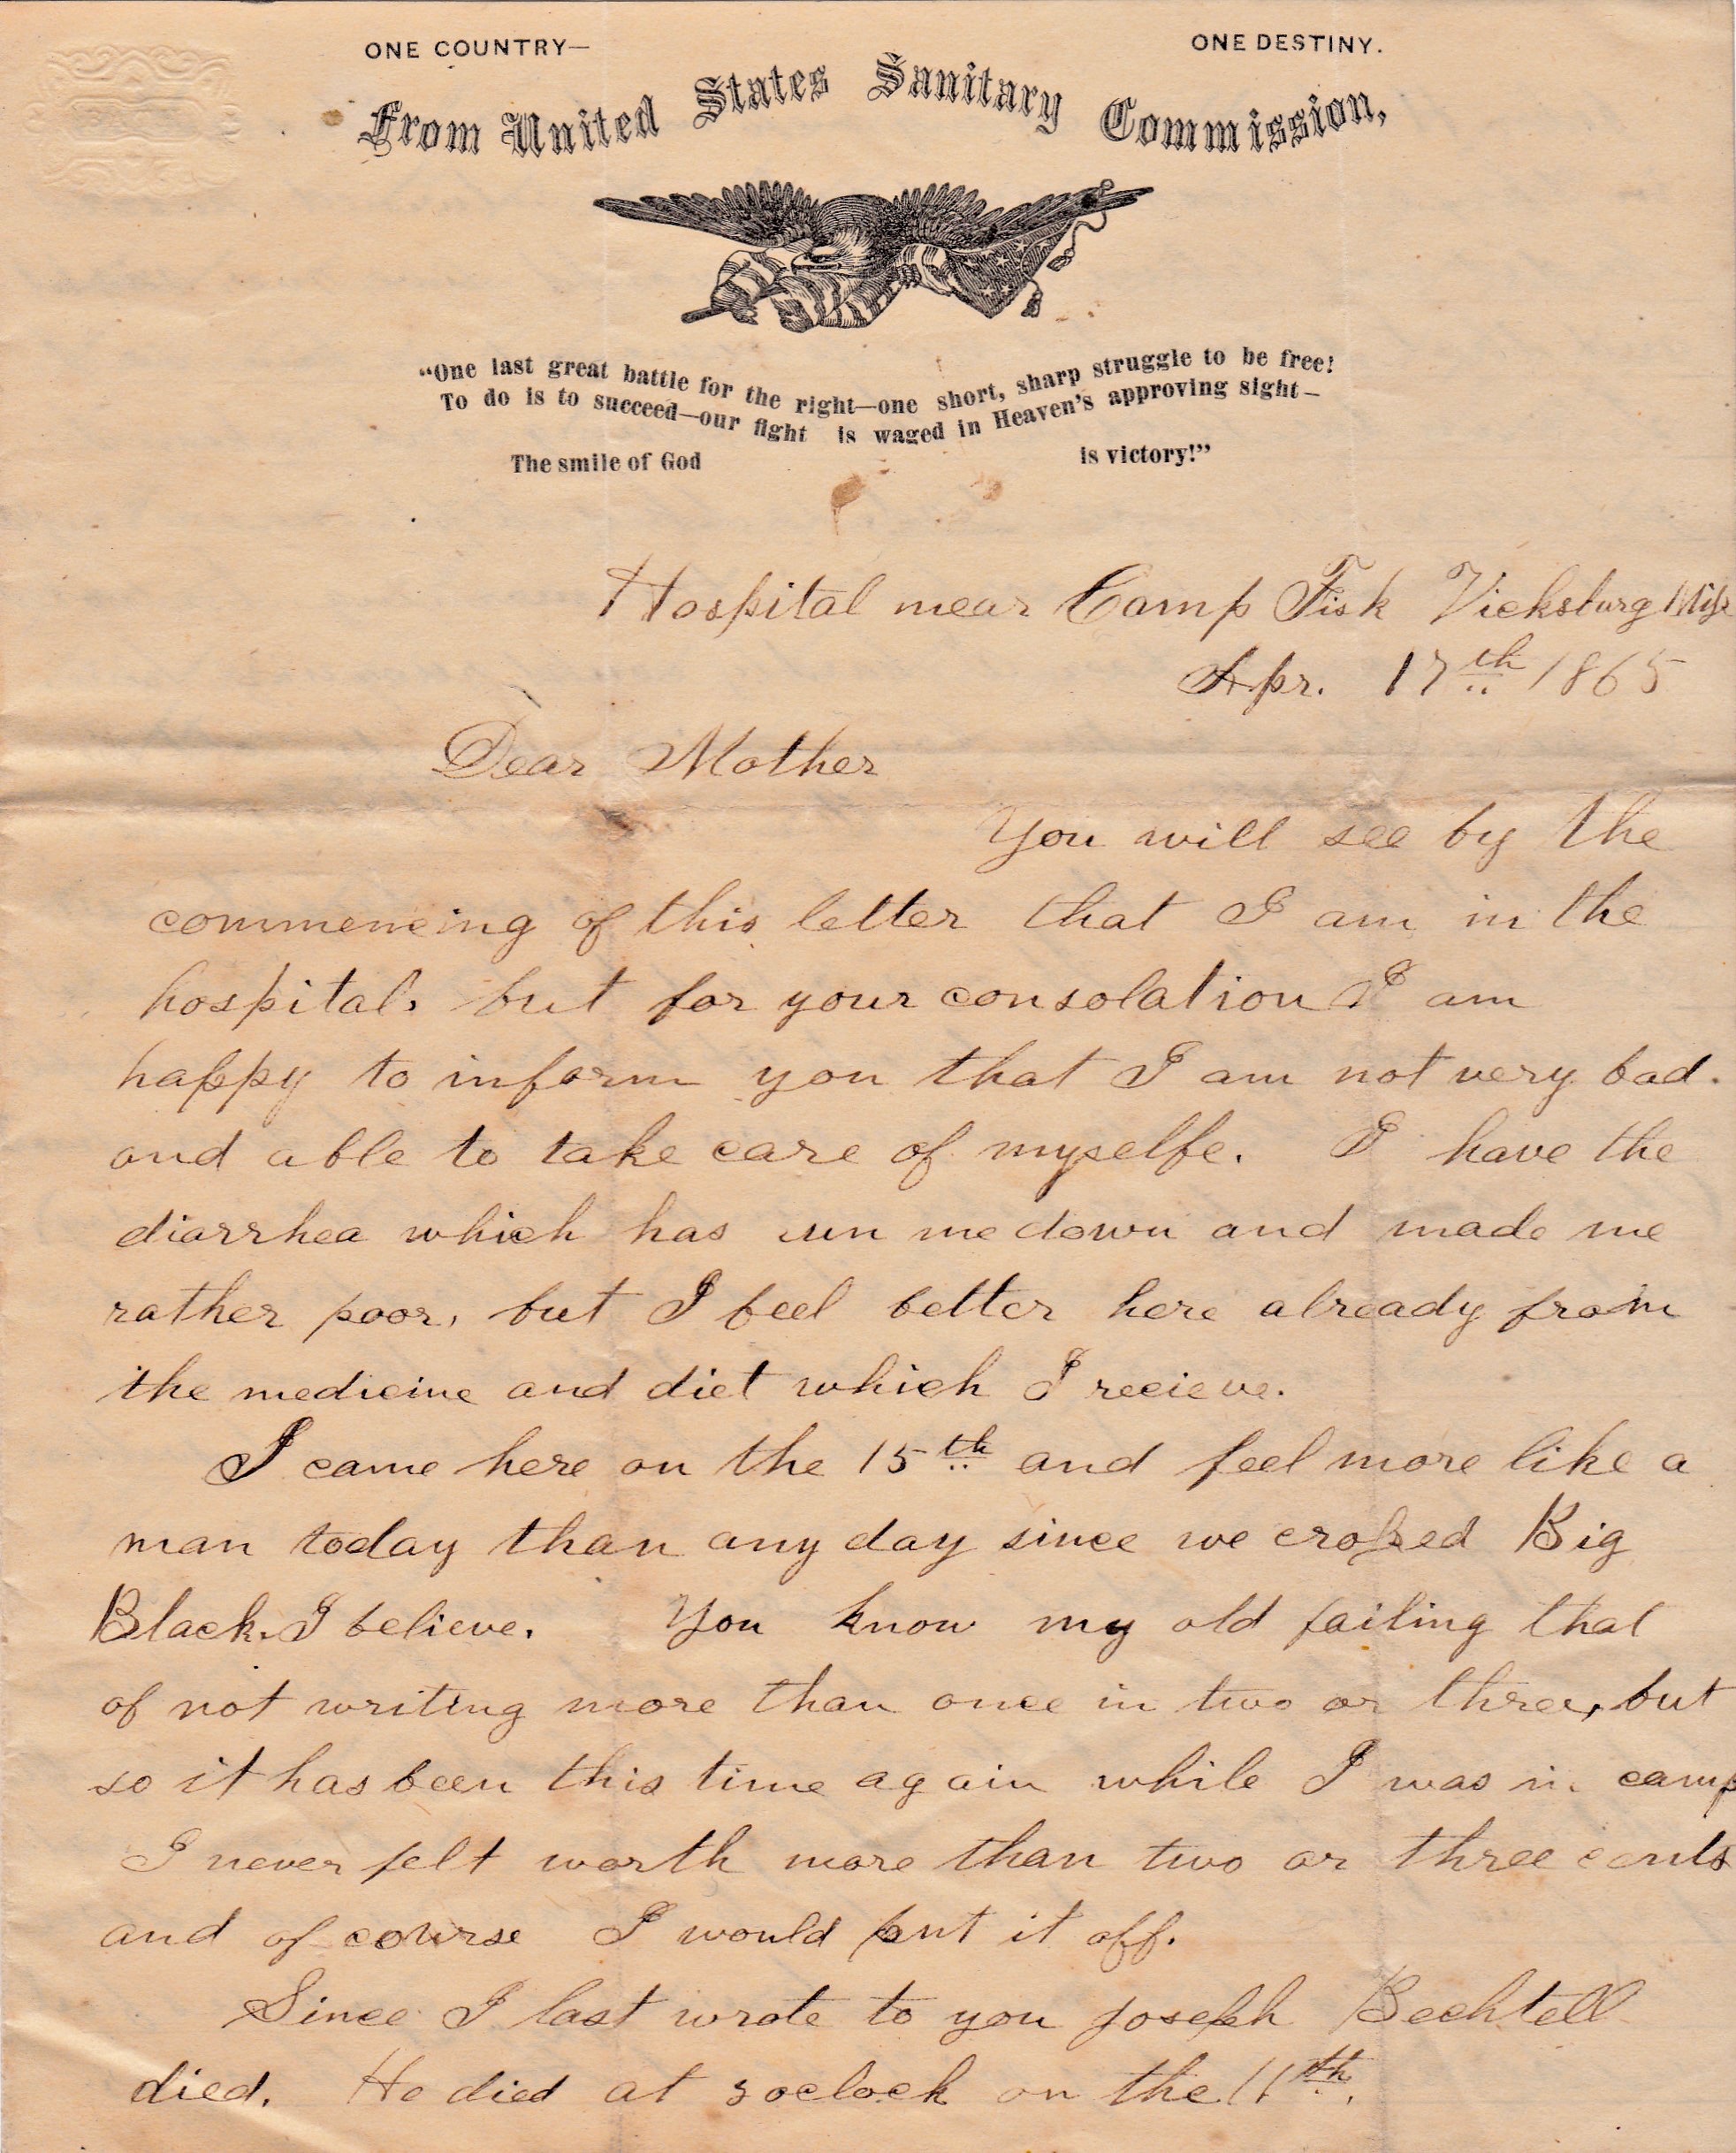 ONE COUNTRY— ONE DESTINY.
From United States Sanitary Commission,
"One last great battle for the right—one short, sharp struggle to be free!
To do is to succeed—our fight is waged in Heaven's approving sight—
The smile of God is victory!"
Hospital near Camp Fisk Vicksburg Miss
Apr. 17th 1865
Dear Mother
You will see by the
commencing of this letter that I am in the
hospital, but for your consolation I am
happy to inform you that I am not very bad.
and able to take care of myselfe. I have the
diarrhea which has run me down and made me
rather poor, but I feel better here already from
the medicine and diet which I recieve.
I came here on the 15th and feel more like a
man today than any day since we crossed Big
Black. I believe. You know my old failing that
of not writing more than once in two or three, but
so it has been this time again while I was in camp
I never felt worth more than two or three cents
and of course I would put it off.
Since I last wrote to you Joseph Bechtell
died. He died at 3 oclock on the 11th.